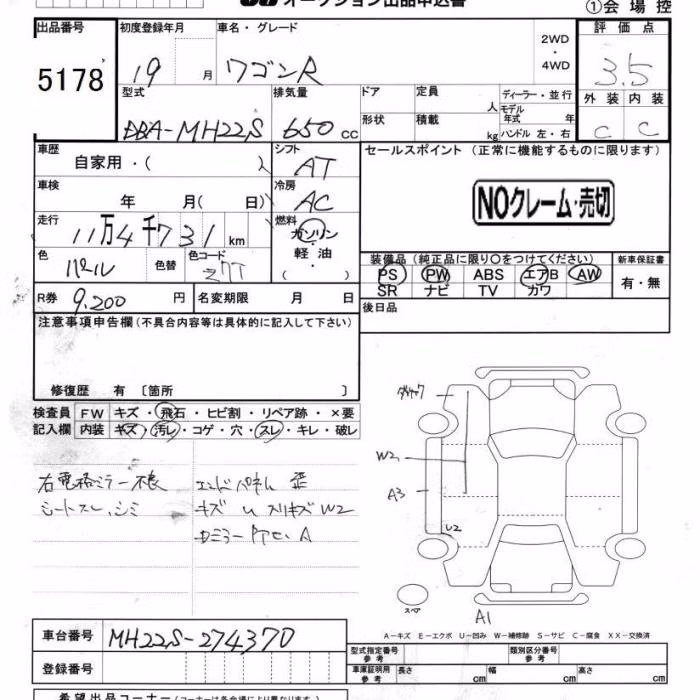 オークション出品申込書
①会場控
出品番号 初度登録年月 車名・グレード 2WD・4WD 評価点
5178 19 月 ワゴンR 3.5
型式 排気量 ドア 定員 人 ディーラー・並行 外装 内装
DBA-MH22S 650 cc 形状 積載 kg モデル年式 年 ハンドル 左・右 C C
車歴 自家用・( ) シフト AT セールスポイント (正常に機能するものに限ります)
車検 年 月( 日) 冷房 AC
NOクレーム・売切
走行 11万4千731 km 燃料 ガソリン
軽油・( )
色 パール 色替 色コード Z7T
装備品 (純正品に限り○をつけてください) 新車保証書
PS PW ABS エアB AW 有・無
SR ナビ TV カワ
R券 9,200 円 名変期限 月 日 後日品
注意事項申告欄 (不具合内容等は具体的に記入して下さい)
修復歴 有 〔箇所 〕
検査員 FW キズ・飛石・ヒビ割・リペア跡・×要
記入欄 内装 キズ・汚レ・コゲ・穴・スレ・キレ・破レ
右電格ミラー不良
シートスレ、シミ
エンドパネル 歪
キズ U スリキズ W2
W2
A3
U2
スペア
A1
A-キズ E-エクボ U-凹み W-補修跡 S-サビ C-腐食 XX-交換済
車台番号 MH22S-274370
登録番号
型式指定番号 参考 類別区分番号 参考
車庫証明用 参考 長さ cm 幅 cm 高さ cm
希望出品コーナー